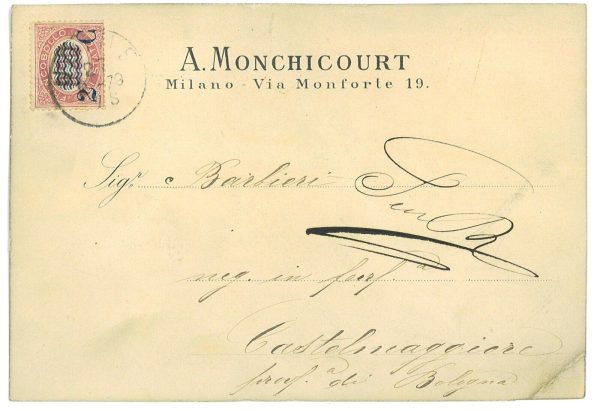 2 C
79
A. MONCHICOURT
Milano - Via Monforte 19.
Sigr. Barbieri
neg. in
Castelmaggiore
di Bologna